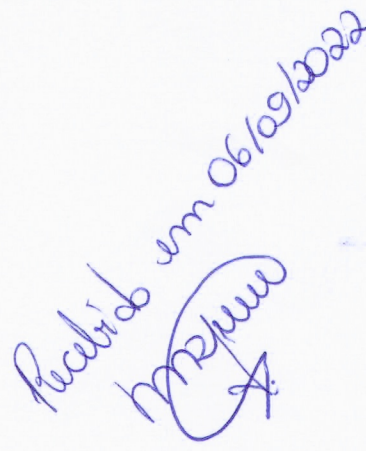 Recebido em 06/09/2022